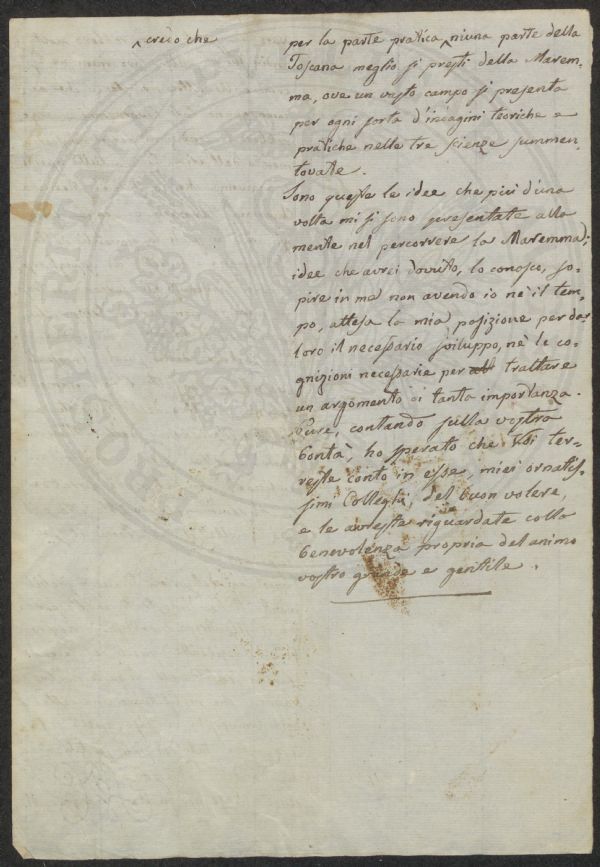 ^ credo che
per la parte pratica ^ niuna parte della
Toscana meglio si presti della Marem-
ma, ove un vasto campo si presenta
per ogni sorta d'indagini teoriche e
pratiche nelle tre scienze summen-
tovate.
Sono queste le idee che più d'una
volta mi si sono presentate alla
mente nel percorrere la Maremma;
idee che avrei dovuto, lo conosco, so-
pire in me non avendo io nè il tem-
po, attesa la mia posizione per dar
loro il necessario sviluppo, nè le co-
gnizioni necessarie per trattare
un argomento di tanta importanza.
Pure, contando sulla vostra
bontà, ho sperato che Voi ter-
reste conto in esse, miei ornatis-
simi Colleghi, del buon volere,
e le avreste riguardate colla
benevolenza propria del animo
vostro grande e gentile.